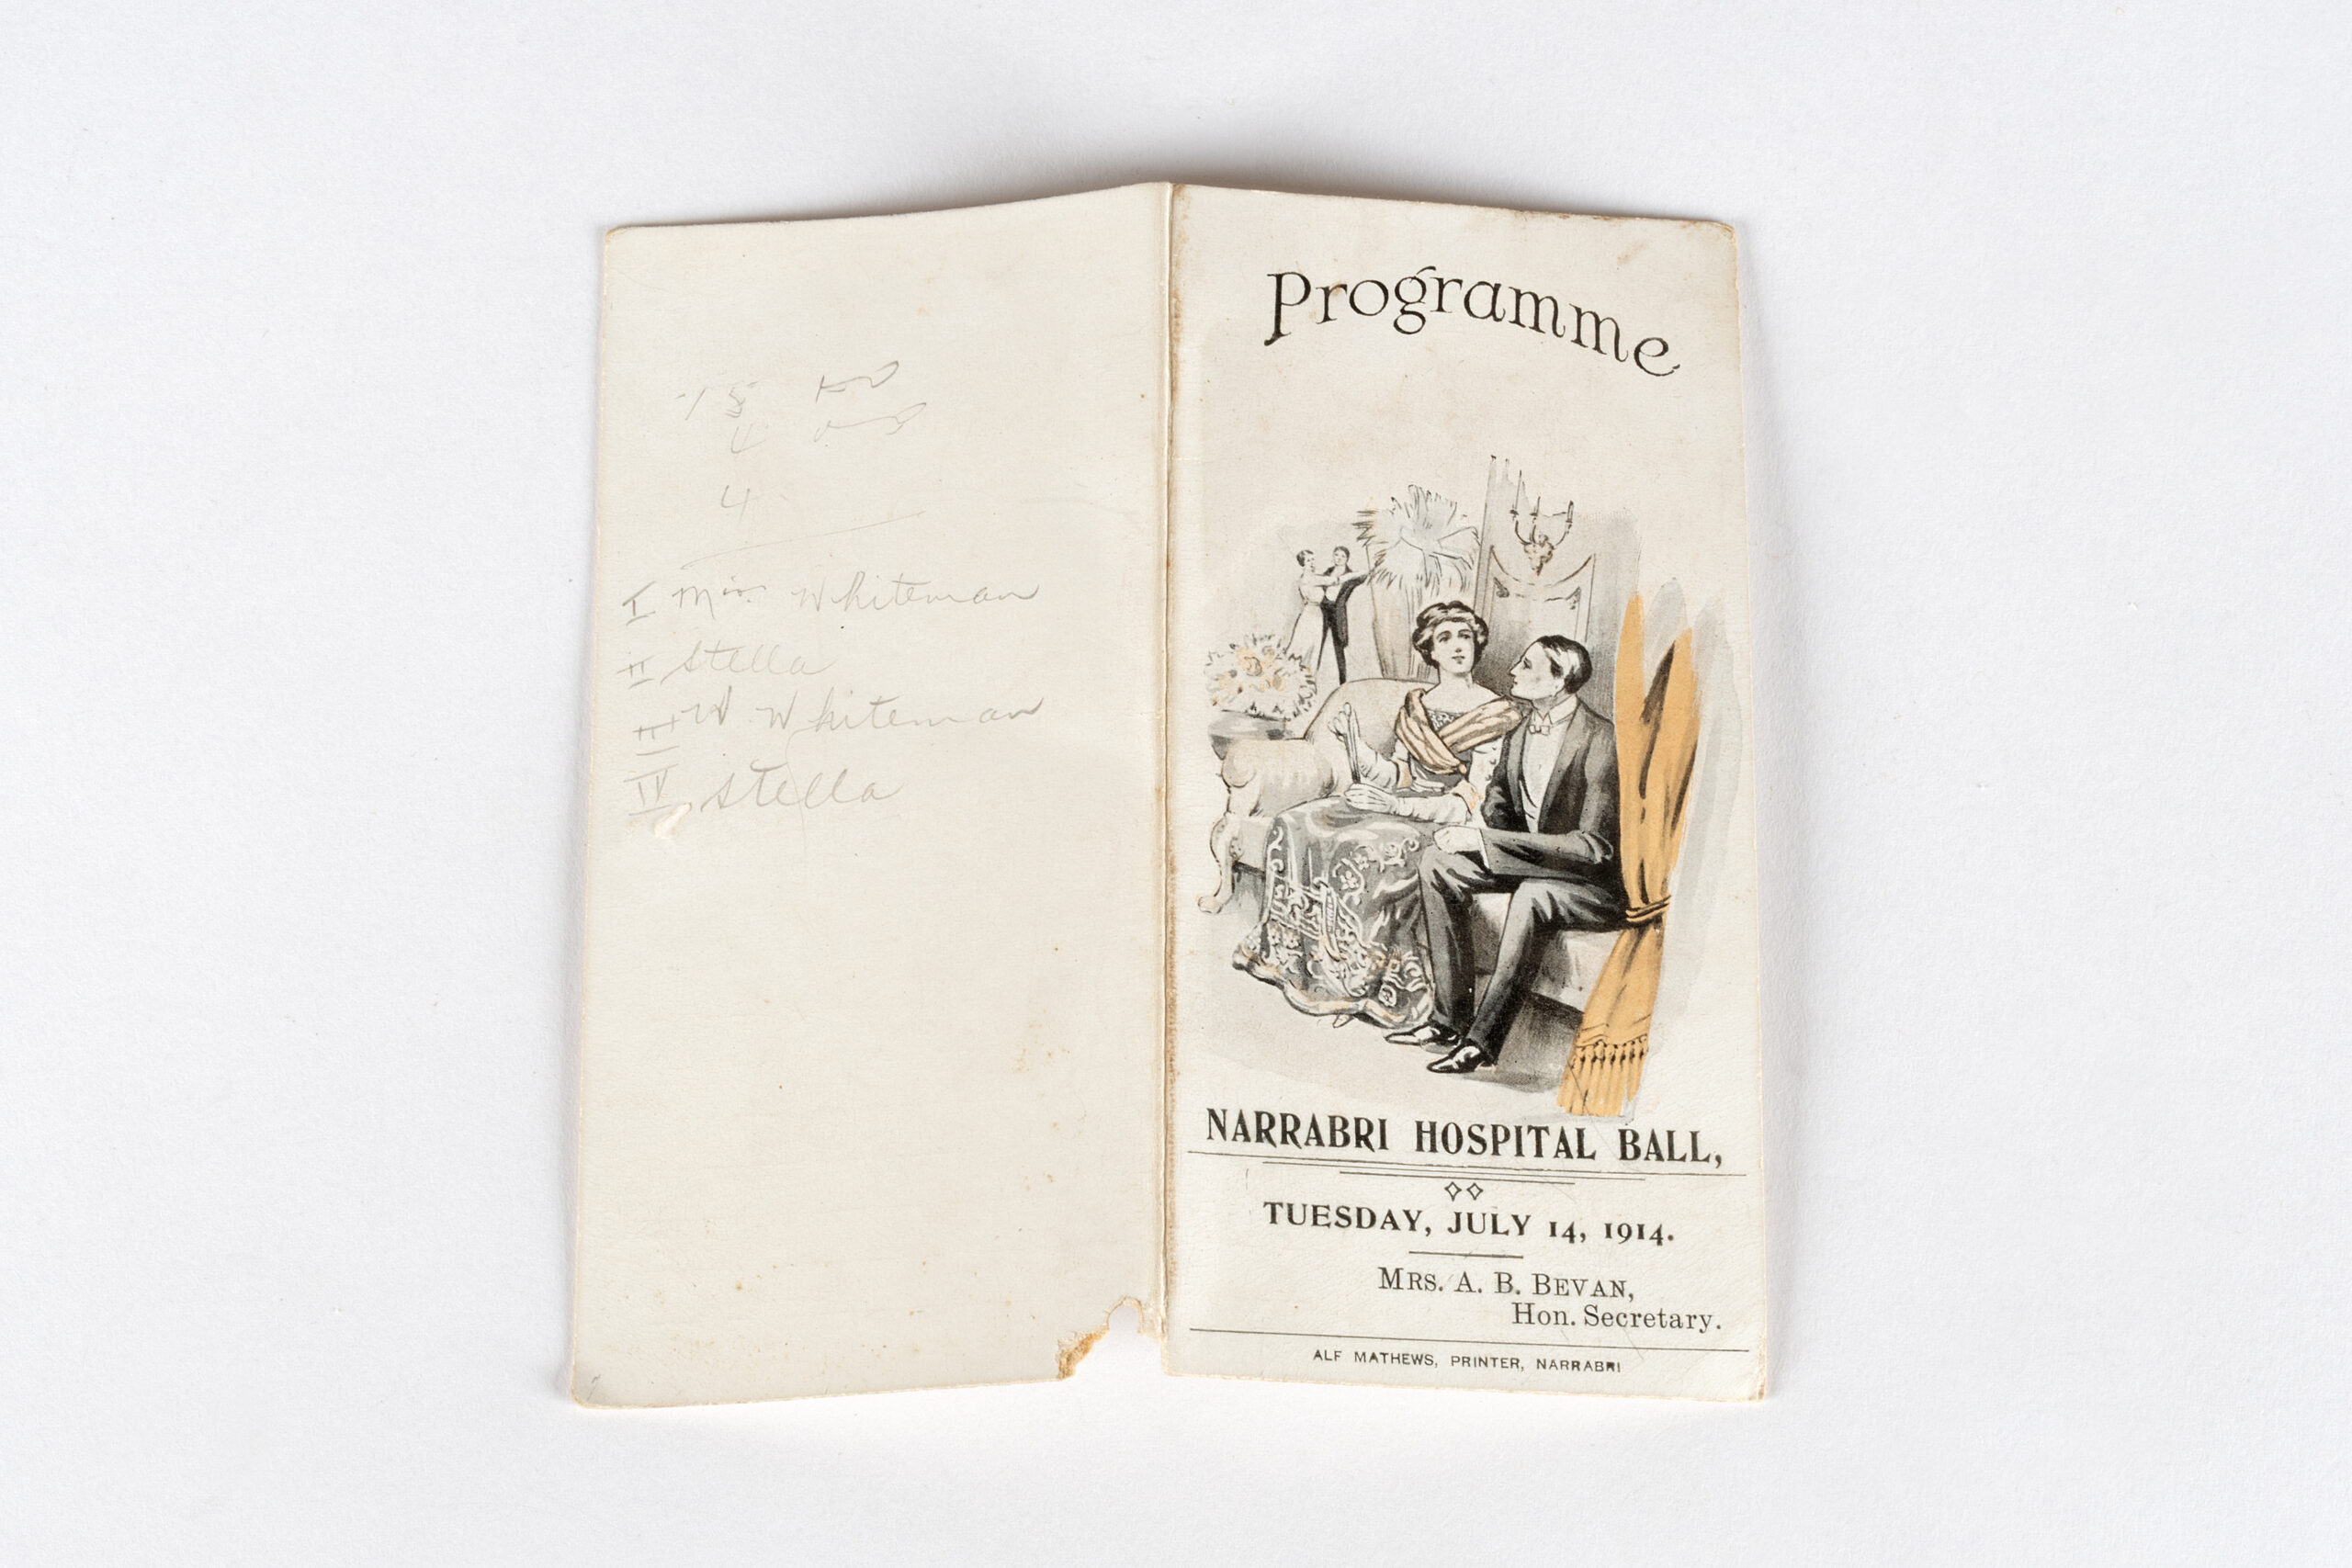 4
I Mis. Whiteman
II Stella
III W Whiteman
IV Stella
Programme
NARRABRI HOSPITAL BALL,
TUESDAY, JULY 14, 1914.
MRS. A. B. BEVAN,
Hon. Secretary.
ALF MATHEWS, PRINTER, NARRABRI